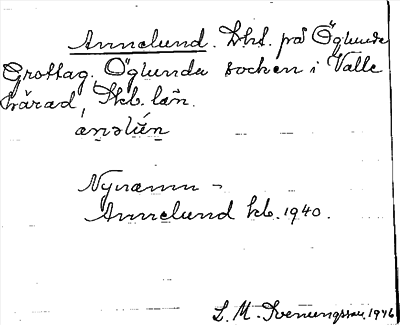 Annelund. Lht. på Öglunda
Groftag, Öglunda socken i Valle
härad, Skb. län.
ánəlún
Nynamn -
Annelund kb. 1940.
L. M. Svenungsson, 1946